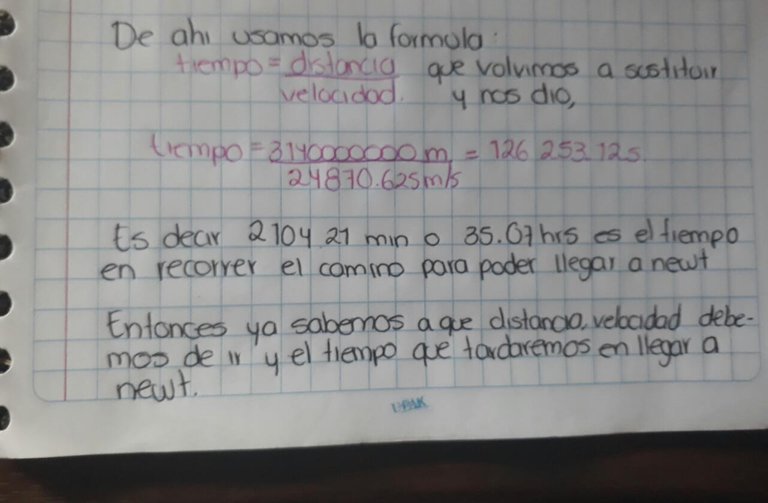 De ahi usamos la formula:
tiempo = distancia que volvimos a sustituir
velocidad. y nos dio,
tiempo = 3140000000 m = 126 253.12 s.
24870.625 m/s
Es decir 2104 21 min o 35.07 hrs es el tiempo
en recorrer el camino para poder llegar a newt
Entonces ya sabemos a que distancia, velocidad debe-
mos de ir y el tiempo que tardaremos en llegar a
newt.